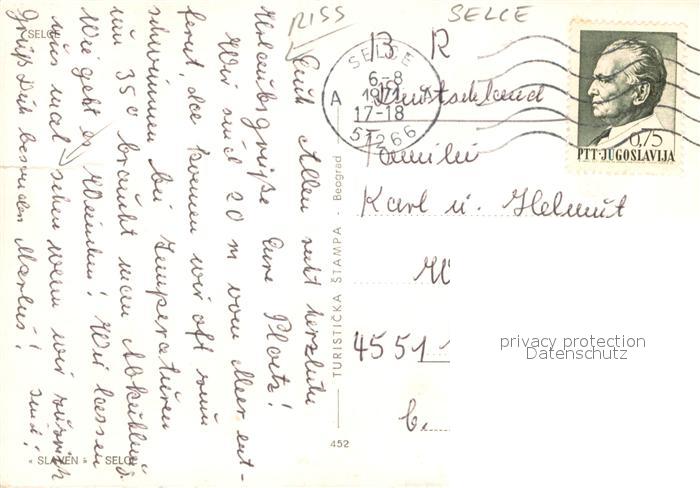 RISS
SELCE
SELCE
Euch Allen recht herzliche
Urlaubsgrüße Eure Plootz!
Wir sind 20 m vom Meer ent-
fernt, da können wir oft zum
schwimmen bei Temperaturen
um 35° braucht man Abkühlung.
Wie geht es ! Wir lassen
uns mal sehen wenn wir zurück
sind!
Grüß Dich besonders Markus!
« SLAVEN » SELCE
TURISTIČKA ŠTAMPA - Beograd
452
SELCE
6-8
1971
17-18
A A
51266
0,75
PTT·JUGOSLAVIJA
B R
Deutschland
Familie
Karl u. Helmut
4551
b.
privacy protection
Datenschutz